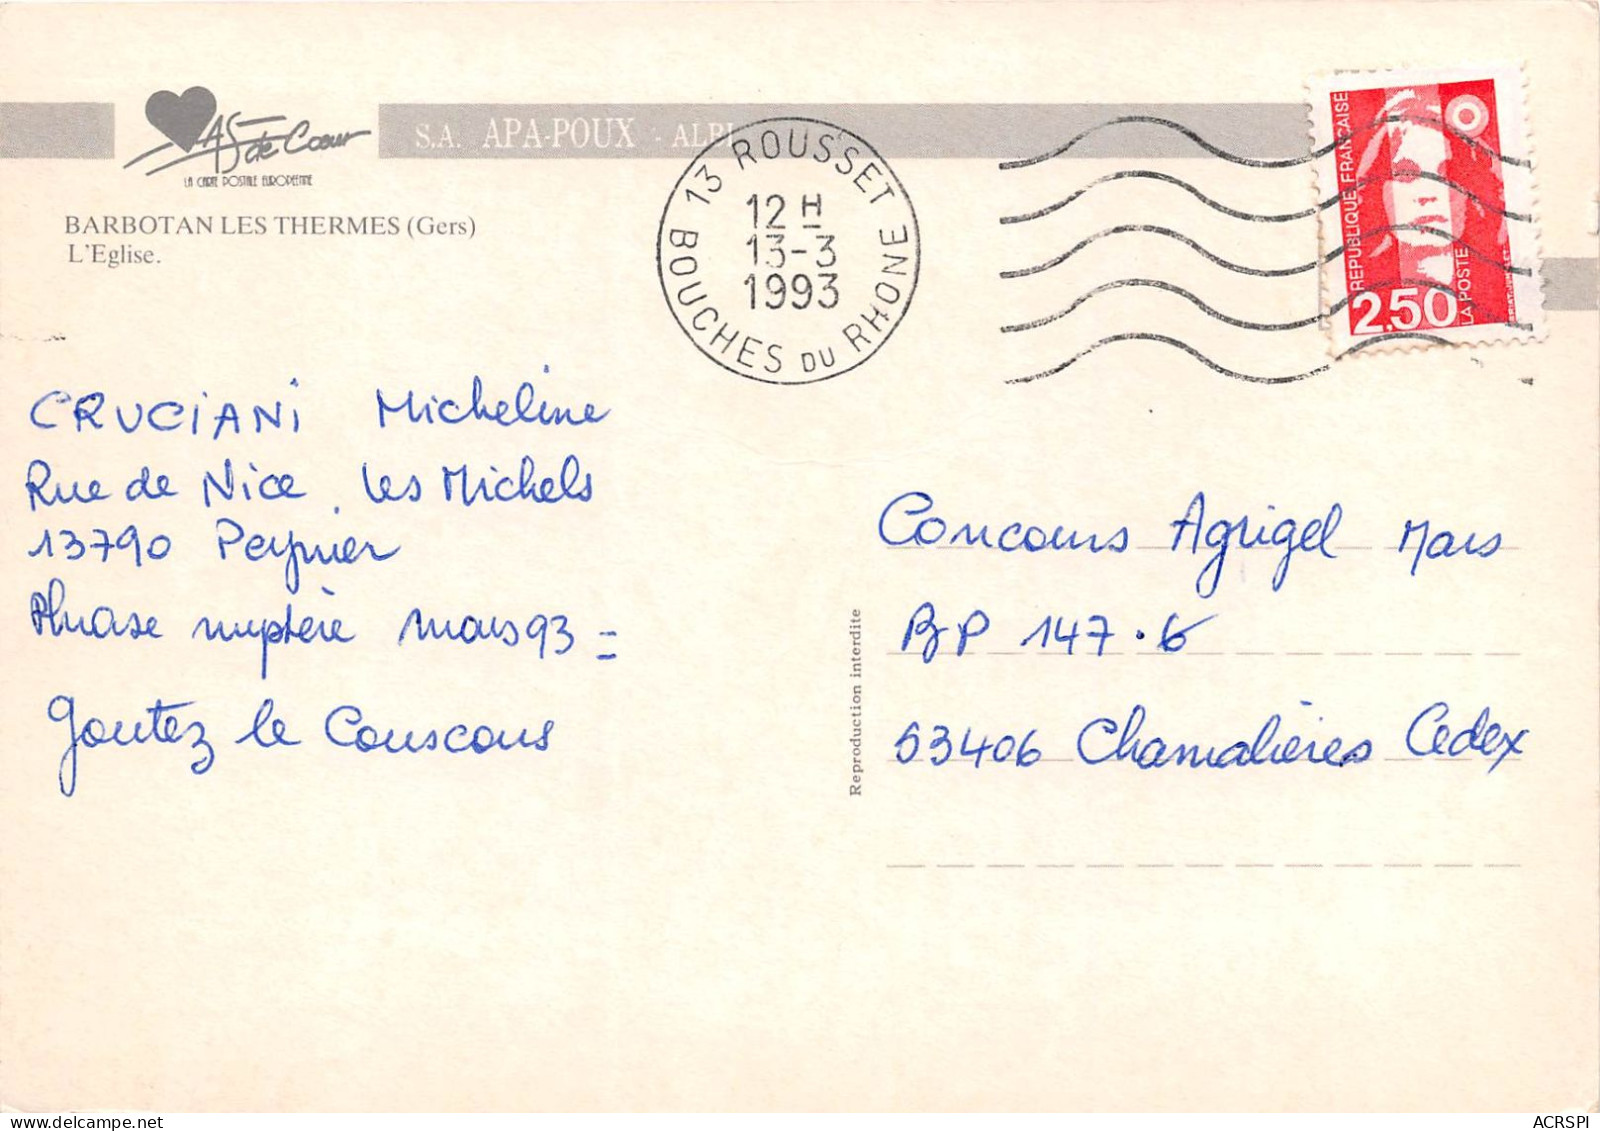 AS de Cœur
LA CARTE POSTALE EUROPEENNE
S.A. APA-POUX - ALBI
BARBOTAN LES THERMES (Gers)
L'Eglise.
13 ROUSSET
12 H
13-3
1993
BOUCHES DU RHONE
REPUBLIQUE FRANÇAISE
2,50
LA POSTE
CRUCIANI Micheline
Rue de Nice. Les Michels
13790 Peynier
Phrase mystère mars 93 =
Goutez le Couscous
Reproduction interdite
Concours Agrigel Mars
BP 147.6
63406 Chamalières Cedex
ACRSPI